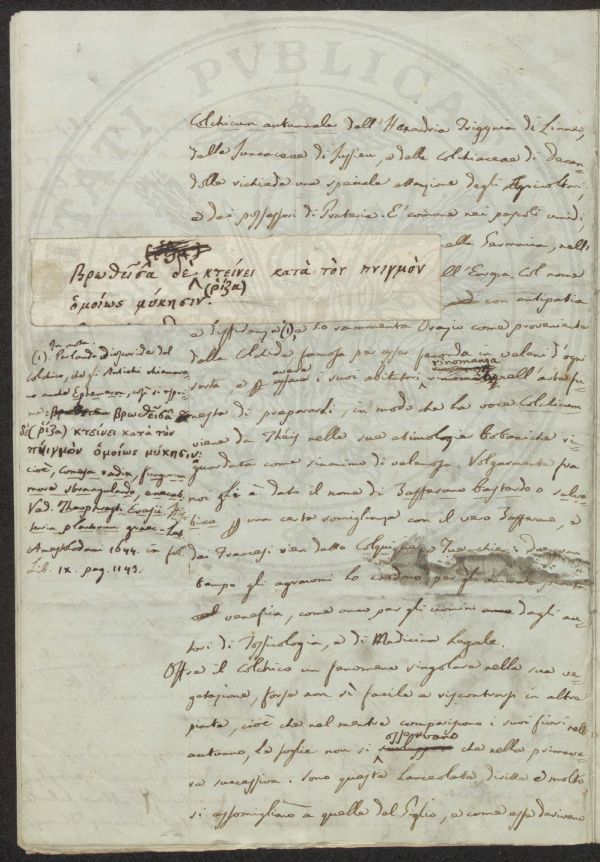 Colchicum autunnale dall' Hexandria Trigynia di Linneo,
dalle Juncaceae di Jussieu, e dalle Colchiaceae di Decan=
dolle richiede una speciale attenzione degli Agricoltori,
e dai possessori di Praterie. E' comune nei pascoli umidi,
nella Germania, nell'
ll' Europa. Col nome
di con antipatia
(ῥίζα)
Βρωθεῖσα δὲ κτείνει κατὰ τὸν πνιγμὸν
(ῥίζα)
ὁμοίως μύκησιν.
e diffidenza (1), e lo rammenta Orazio come proveniente
dalla Colchide, famosa per esser feconda in veleni d'ogni
sorta, e avere i suoi abitatori rinomanza nell' arte fu=
nesta di prepararli, in modo che la voce Colchicum
viene da Théis nella sua etimologia botanica ri=
guardata come sinonimo di velenosa. Volgarmente fra
noi gli è dato il nome di Zafferano bastardo o salva=
tico per una certa somiglianza con il vero Zafferano, e
dai Francesi vien detto Colquique, o Tue-chien.
tempo gli agronomi lo credono per gli animali
venefico, come anco per gli uomini dagli au=
tori di Tossicologia, e di Medicina Legale.
Offre il Colchico un fenomeno singolare nella sua ve=
getazione, forse non sì facile a riscontrarsi in altre
piante, cioè che nel mentre compariscono i suoi fiori nell'
autunno, le foglie non si osservano che nella primave=
ra successiva. Sono queste lanceolate, diritte e molto
si assomigliano a quelle del Giglio, e come esse derivano
In nota.
(1). Parlando Dioscoride del
Colchico, che gli Antichi chiamava=
no anche Ephemeron, così si espri=
me: Βρωθεῖσα
δὲ (ῥίζα) κτείνει κατὰ τὸν
πνιγμὸν ὁμοίως μύκησιν:
cioè, Comesa radix, fungorum
more strangulando, enecat.
Ved. Theophrasti Eresii Hi=
storia plantarum graec-Lat.
Amestelodami 1644. in fol.
Lib. IX. pag. 1143.